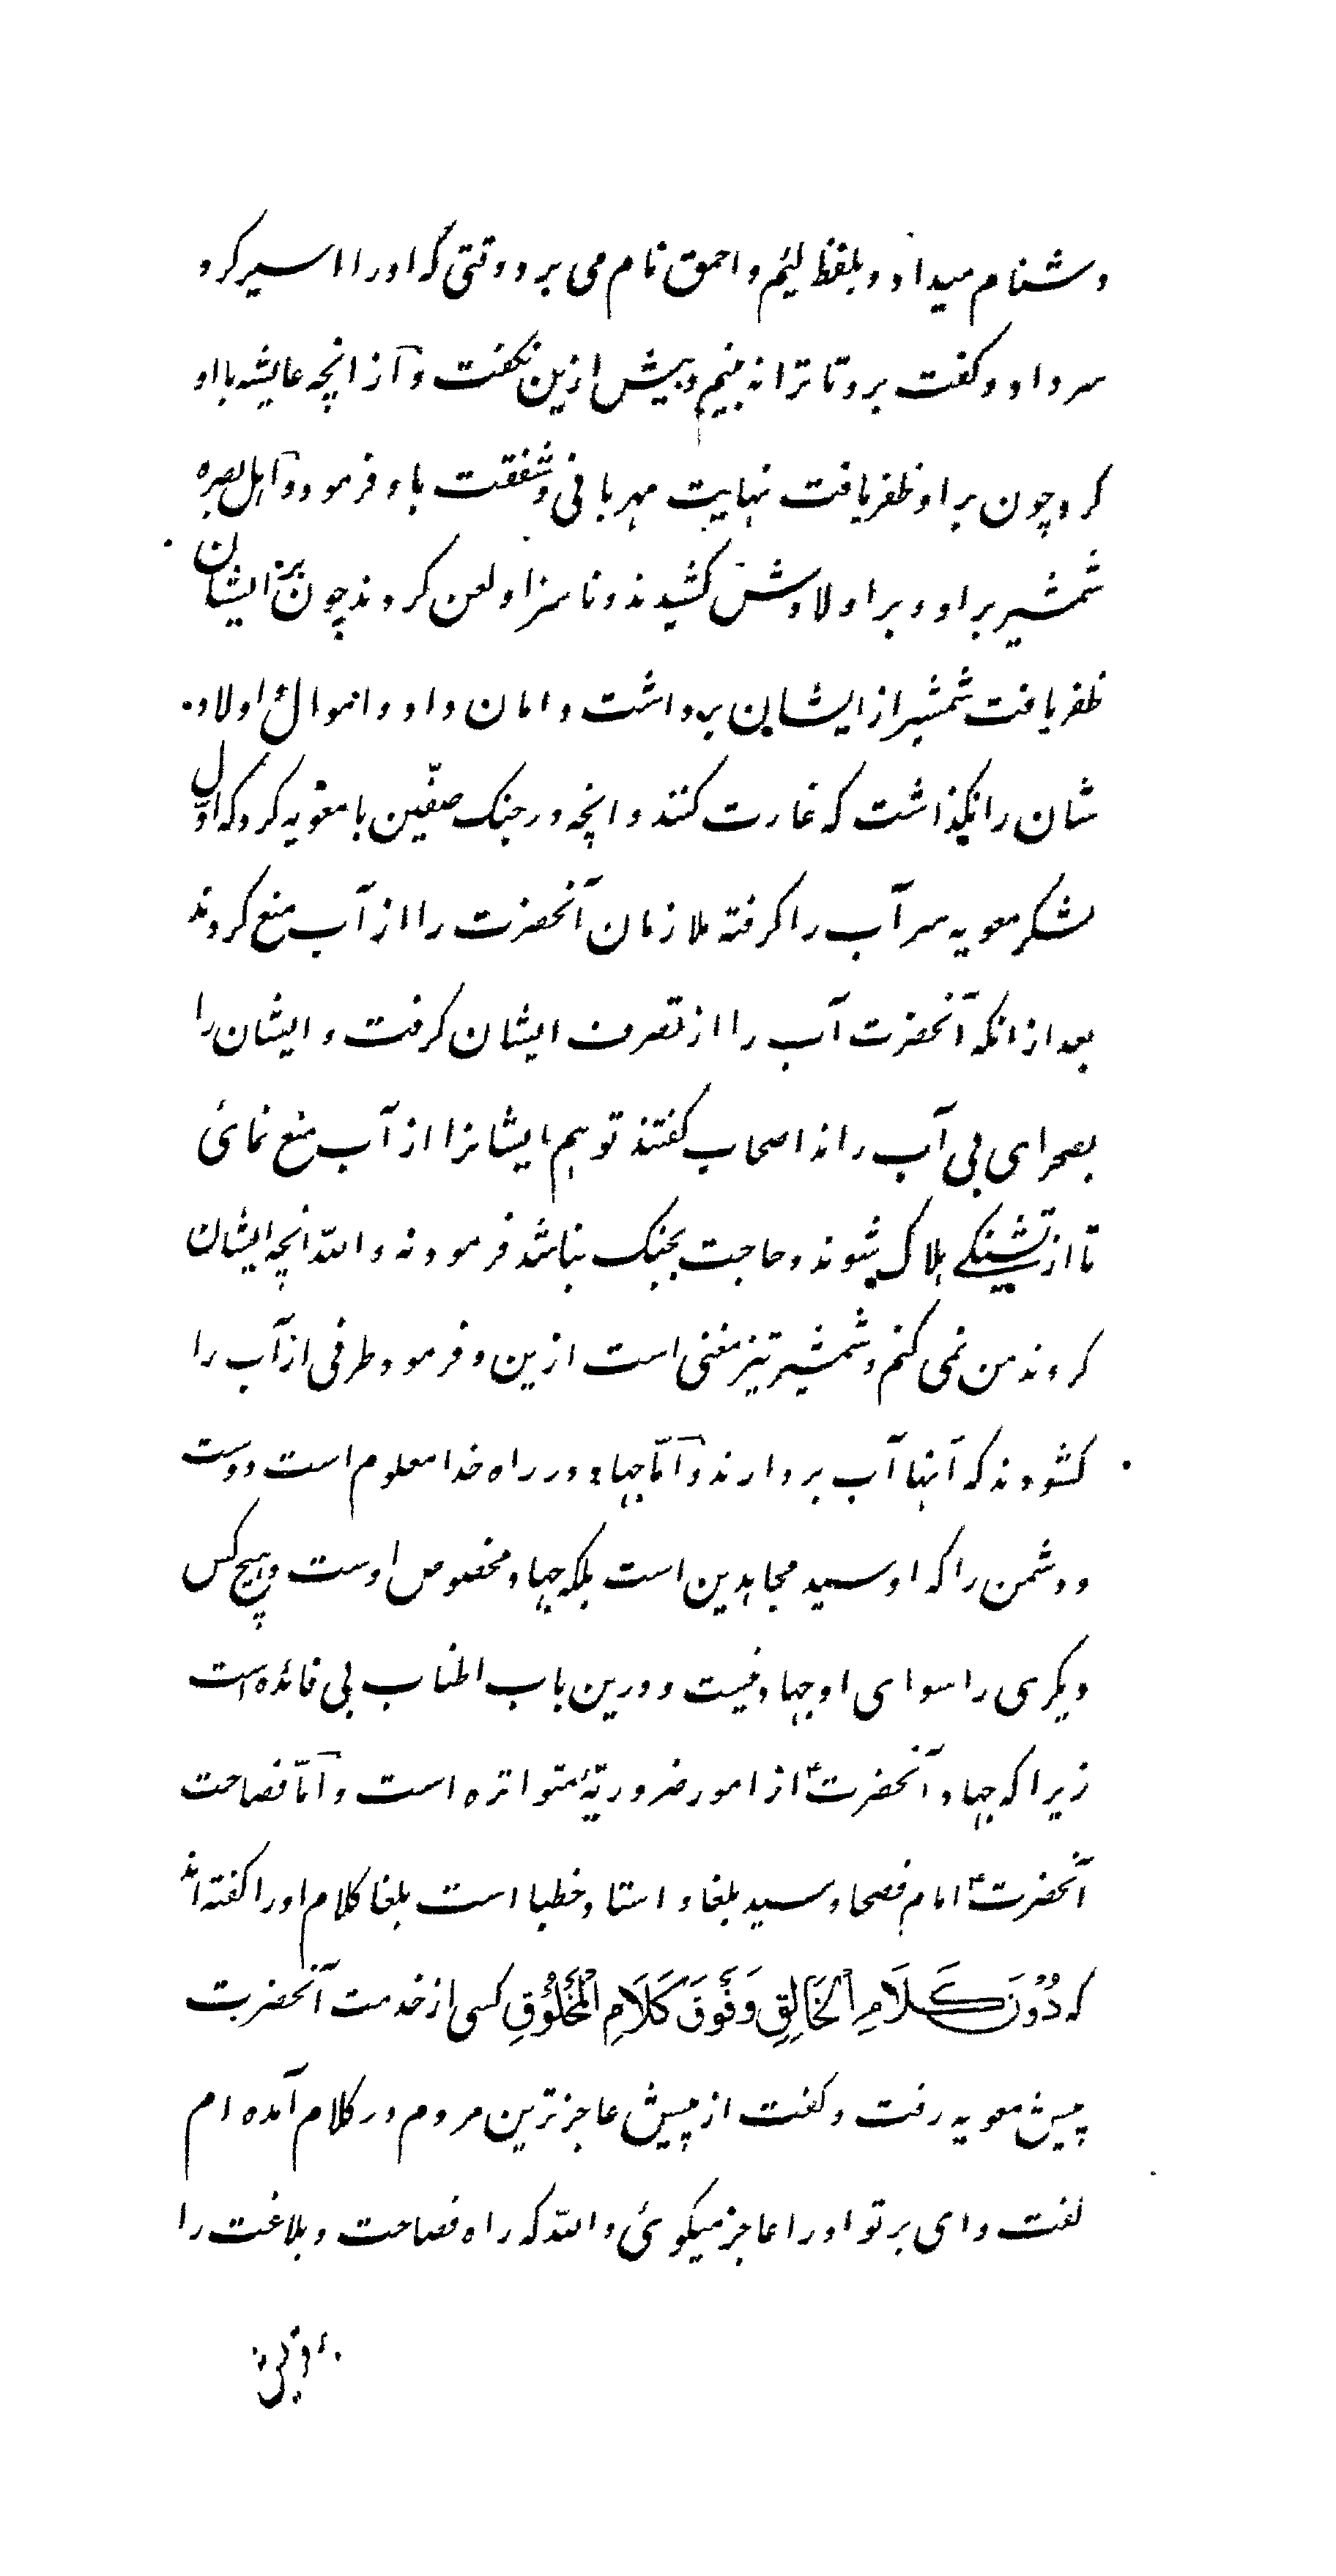 دشنام میداد و بلفظ لئیم و احمق نام می برد و وقتی که او را اسیر کرد
سر داد و گفت برو تا ترا نه بینم و بیش ازین نگفت و از انچه عایشه با او
کرد چون بر او ظفر یافت نهایت مهربانی و شفقت باو فرمود و اهل بصره
شمشیر بر او و بر اولادش کشیدند و ناسزا و لعن کردند چون بر ایشان
ظفر یافت شمشیر از ایشان برداشت و امان داد و اموال و اولاد
شان را نگذاشت که غارت کنند و انچه در جنک صفّین با معویه کرد که اوّل
لشکر معویه سر آب را کرفته ملازمان آنحضرت را از آب منع کردند
بعد از انکه آنحضرت آب را از تصرف ایشان کرفت و ایشان را
بصحرای بی آب راند اصحاب کفتند تو هم ایشانرا از آب منع نمائی
تا از تشنکی هلاک شوند و حاجت بجنک نباشد فرمود نه والله انچه ایشان
کردند من نمی کنم و شمشیر تیز مغنی است ازین و فرمود طرفی از آب را
کشودند که آنها آب بردارند و امّا جهاد در راه خدا معلوم است دوست
و دشمن را که او سید مجاهدین است بلکه جهاد مخصوص اوست و هیچ کس
دیکری را سوای او جهاد نیست و درین باب اطناب بی فائده است
زیرا که جهاد آنحضرت ؑ از امور ضروریّهٔ متواتره است و امّا فصاحت
آنحضرت ؑ امام فصحا و سید بلغا و استاد خطبا است بلغا کلام او را کفته اند
که دُوْنَ كَلَامِ الْخَالِقِ وَفَوْقَ كَلَامِ الْمَخْلُوْقِ کسی از خدمت آنحضرت
پیش معویه رفت و کفت از پیش عاجز ترین مردم در کلام آمده ام
گفت وای بر تو او را عاجز میکوئی والله که راه فصاحت و بلاغت را